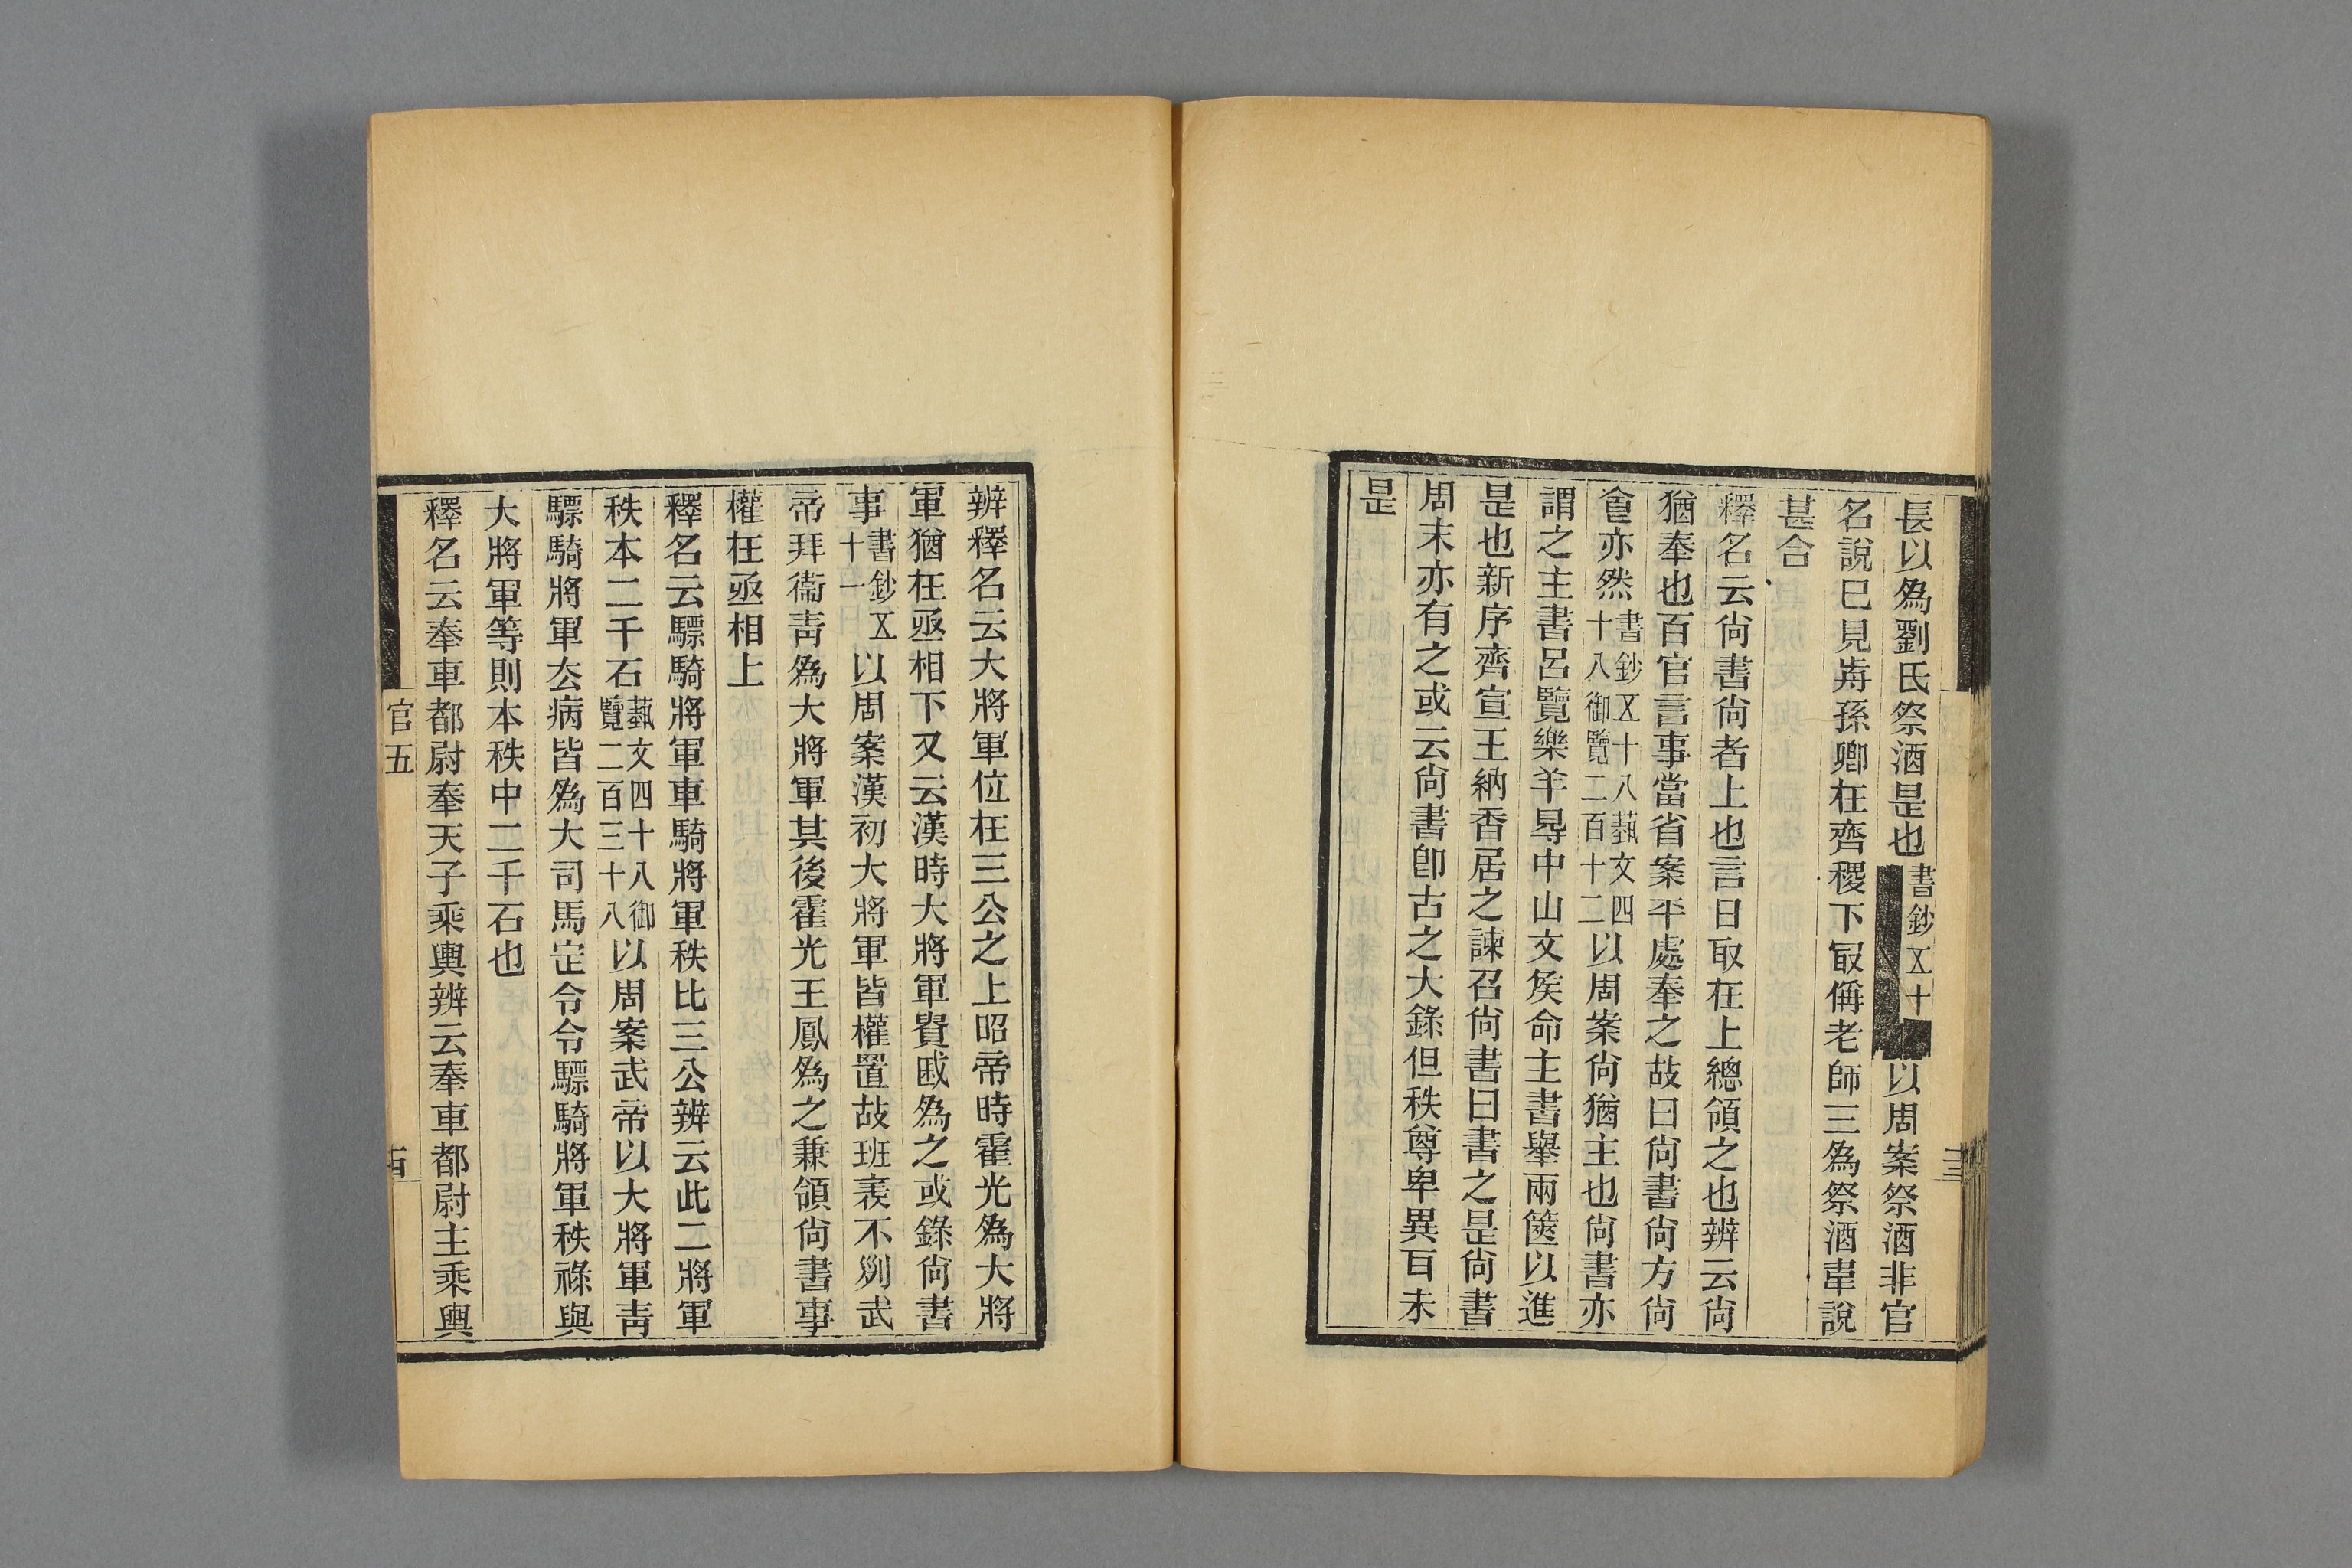 長以為劉氏祭酒是也書鈔五十以周案祭酒非官
名說已見歬孫卿在齊稷下冣偁老師三為祭酒韋說
甚合
釋名云尙書尙者上也言日取在上總領之也辨云尙
猶奉也百官言事當省案平處奉之故曰尙書尙方尙
食亦然書鈔五十八藝文四十八御覽二百十二以周案尙猶主也尙書亦
謂之主書呂覽樂羊㝵中山文矦命主書舉兩篋以進
是也新序齊宣王納香居之諫召尙書曰書之是尙書
周末亦有之或云尙書卽古之大錄但秩尊卑異百未
是
辨釋名云大將軍位在三公之上昭帝時霍光為大將
軍猶在丞相下又云漢時大將軍貴戚為之或錄尙書
事書鈔五十一以周案漢初大將軍皆權置故班表不列武
帝拜衞青為大將軍其後霍光王鳳為之兼領尙書事
權在丞相上
釋名云驃騎將軍車騎將軍秩比三公辨云此二將軍
秩本二千石藝文四十八御覽二百三十八以周案武帝以大將軍青
驃騎將軍去病皆為大司馬定令令驃騎將軍秩祿與
大將軍等則本秩中二千石也
釋名云奉車都尉奉天子乘輿辨云奉車都尉主乘輿
官五